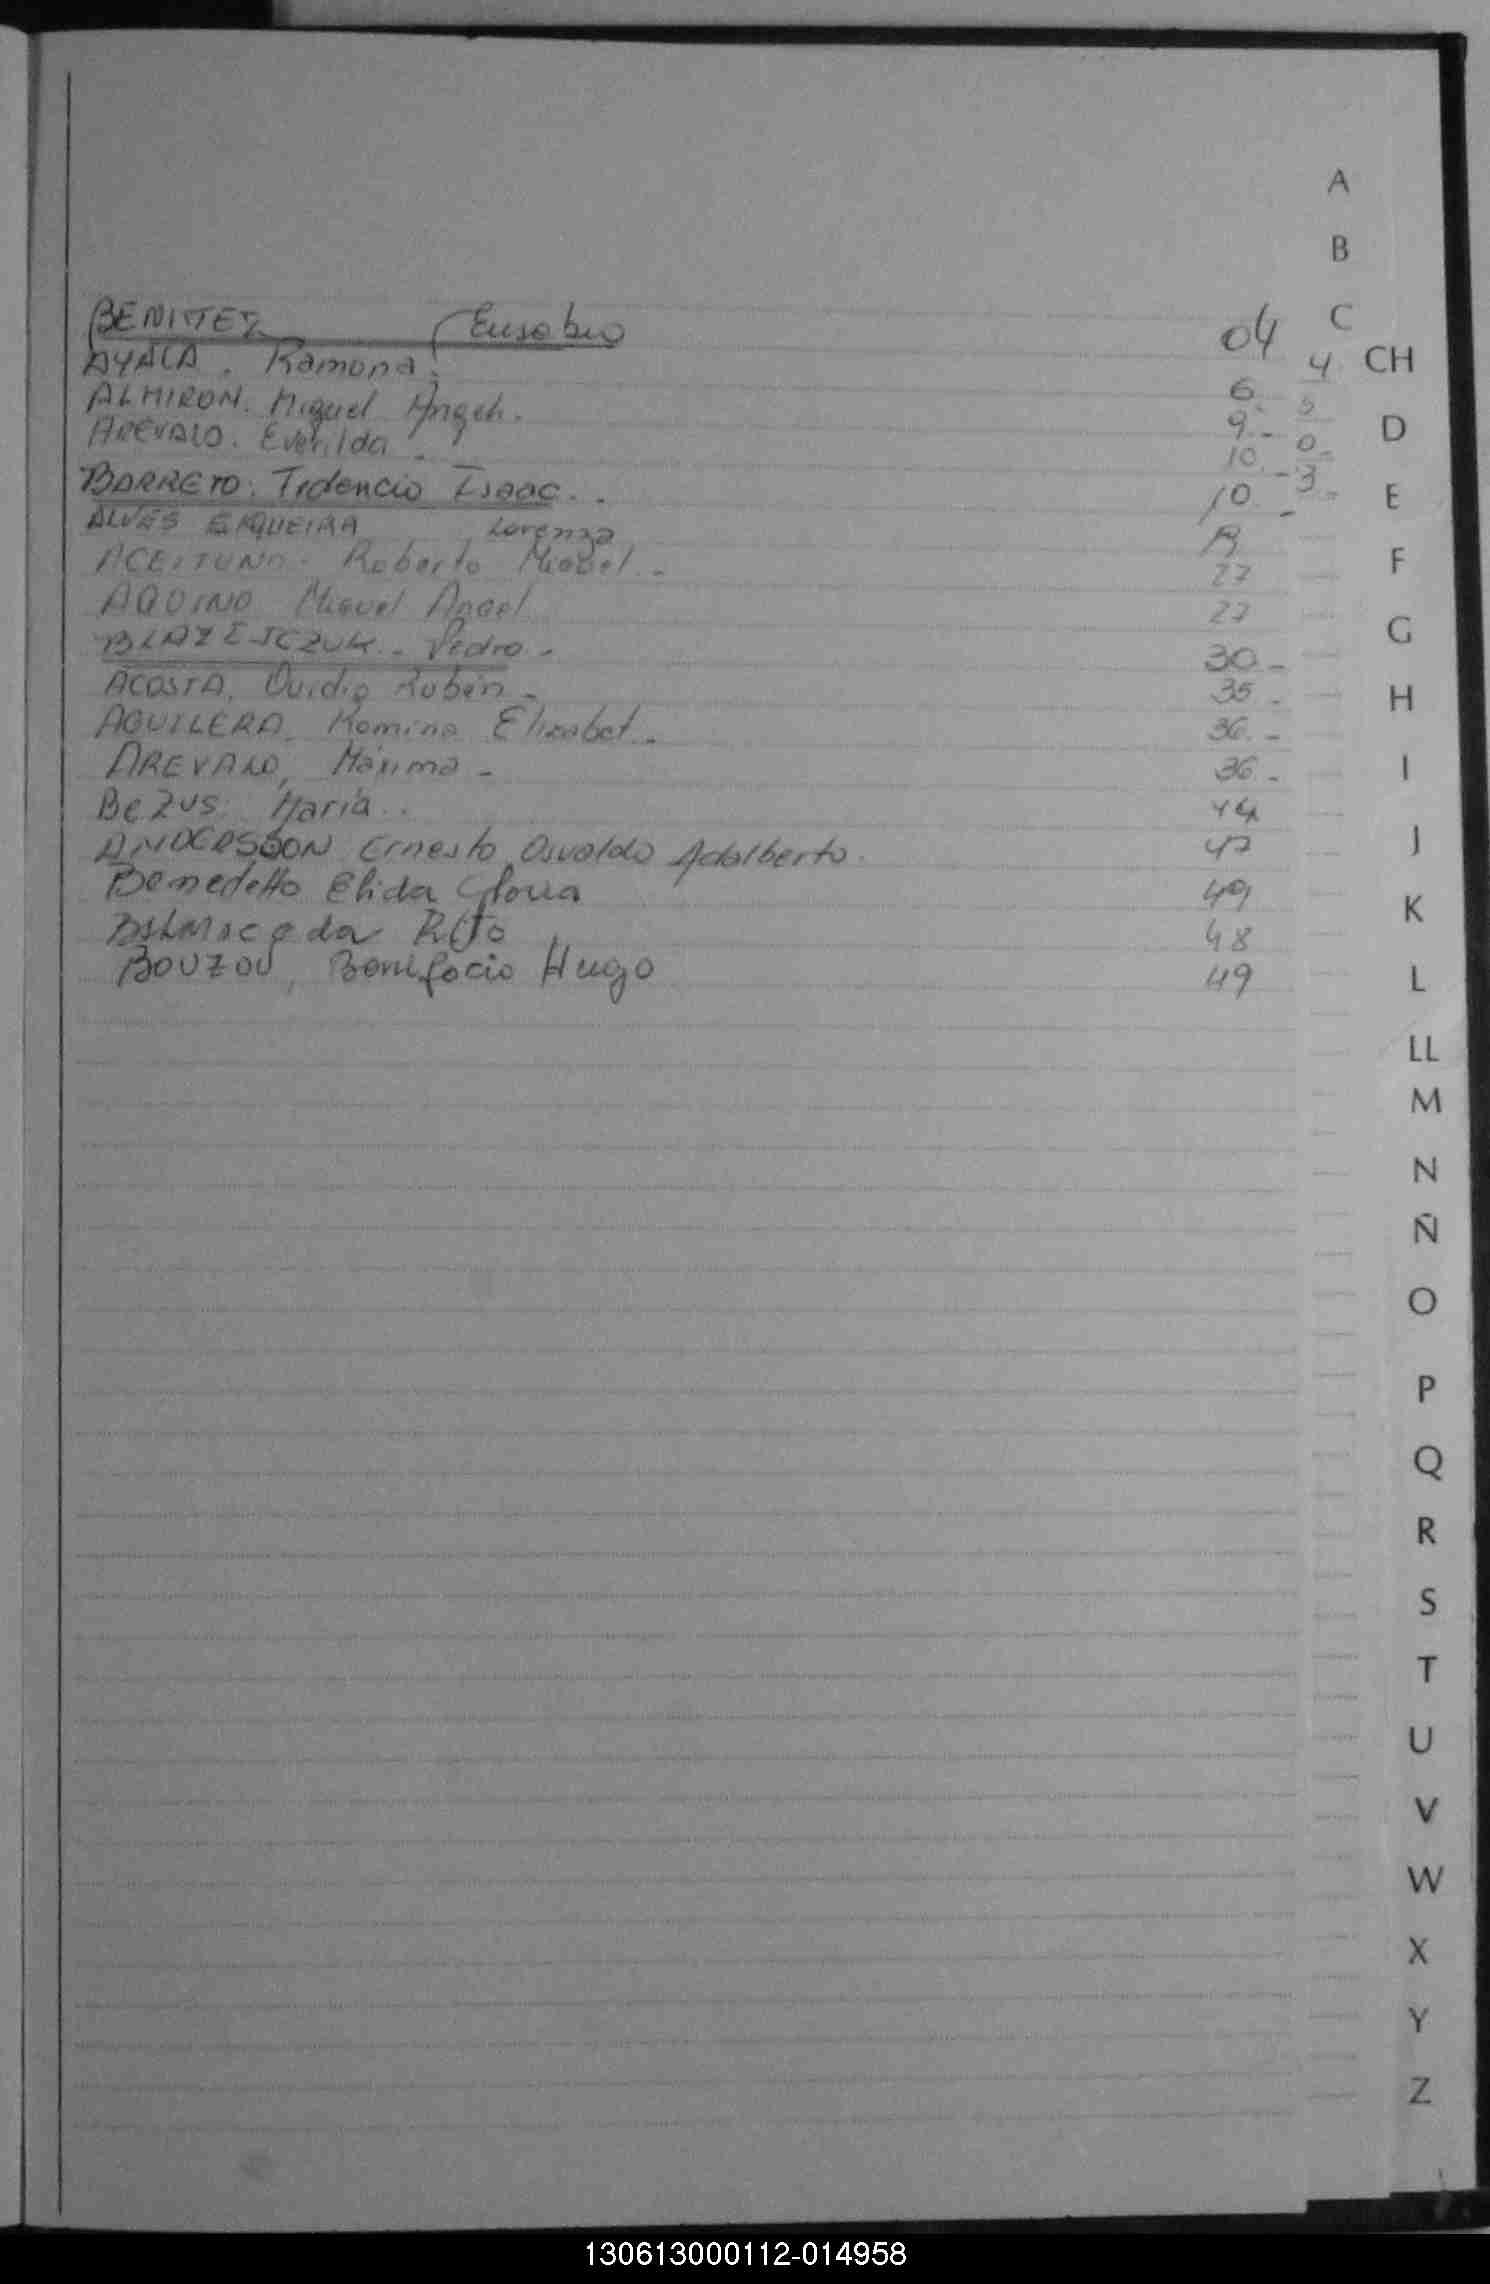 A
B
C
CH
D
E
F
G
H
I
J
K
L
LL
M
N
Ñ
O
P
Q
R
S
T
U
V
W
X
Y
Z
BENITEZ Eusebio 04
AYALA. Ramona. 6. 4
ALMIRON. Miguel Angel. 9.-
AREVALO. Everilda.- 10.- 0-
BARRETO. Isaac.. 10.- 3-
ALVES SIQUEIRA, Lorenza
ACEITUNO. Roberto Miguel.- 27
AQUINO Miguel Angel 27
BLAZEJCZUK.- Pedro.- 30.-
ACOSTA, Ovidio Rubén.- 35.-
AQUILERA, Romina Elizabet.- 36.-
AREVALO, Máxima.- 36.-
BEZUS. María.. 44
ANDERSSON Ernesto Osvaldo Adalberto. 47
Benedetto Elida Gloria 49
Balmaceda Rito 48
BOUZOU, Bonifacio Hugo 49
130613000112-014958